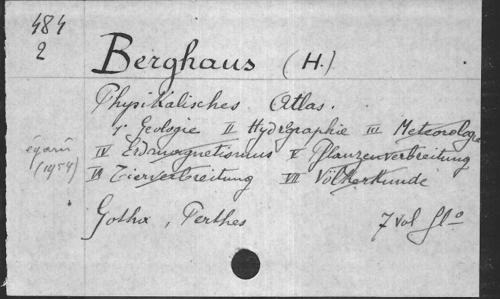 484
2
Berghaus (H.)
Physikalisches Atlas.
I Geologie II Hydrographie III Meteorologie
IV Erdmagnetismus V Pflanzenverbreitung
égaré
(1954)
VI Tierverbreitung VII Völkerkunde
Gotha, Perthes 7 vol flo